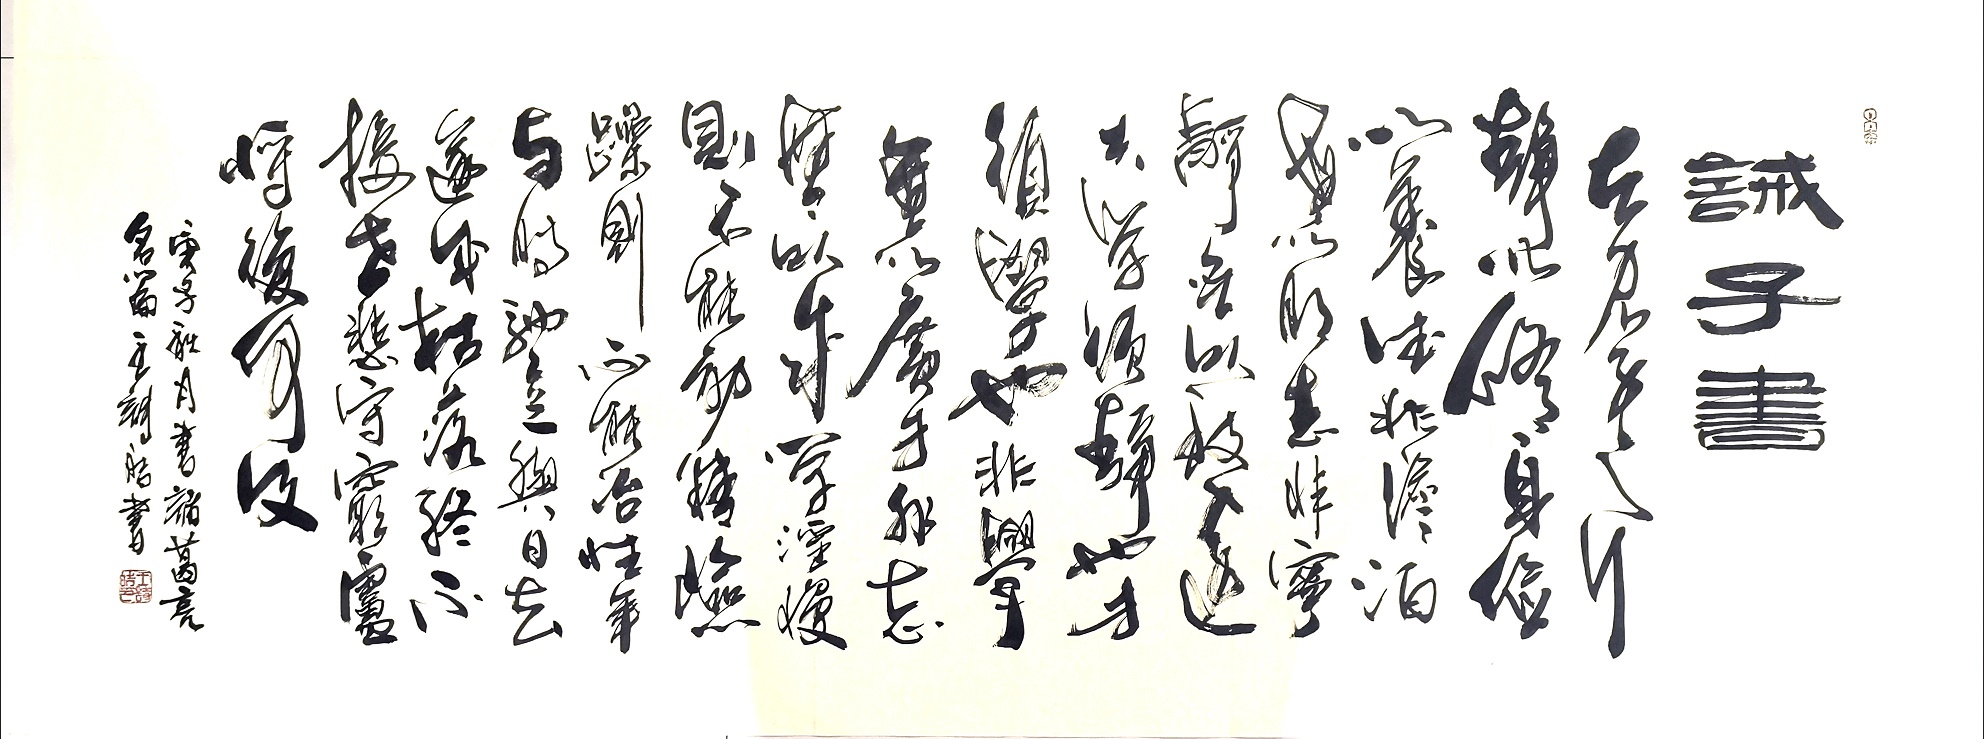 誡子書
夫君子之行
靜以修身儉
以養德非澹泊
無以明志非寧
靜無以致遠
夫学須靜也才
須學也非學
無以廣才非志
無以成学淫慢
則不能勵精險
躁則不能冶性年
与時馳意與日去
遂成枯落終不
接世悲守窮廬
將復何及
庚子 月書諸葛亮
名篇 書